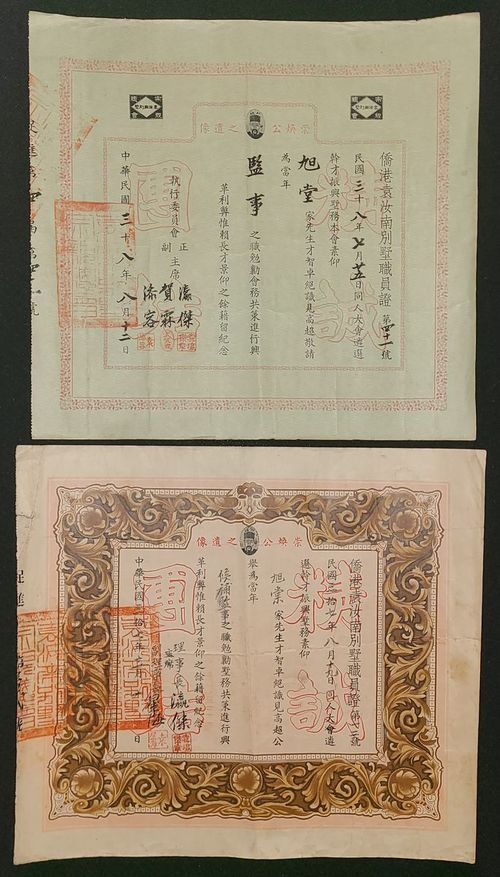 崇煥公之遺像
僑港袁汝南別墅職員證第四十一號
民國三十八年七月五日同人大會遴選
幹才振興墅務本會素仰
旭堂家先生才智卓絕識見高超敬請
為當年
監事之職勉勵會務共策進行興
革利弊惟賴長才景仰之餘藉留紀念
執行委員會正副主席
瀛傑
賀霖
中華民國三十八年八月十二日
崇煥公之遺像
僑港袁汝南別墅職員證
民國三拾七年八月十九日同人大會遴
選幹才振興墅務素仰
旭棠家先生才智卓絕識見高超公
舉為當年
候補監事之職勉勵墅務共策進行興
革利弊惟賴長才景仰之餘藉留紀念
理事長瀛傑
中華民國